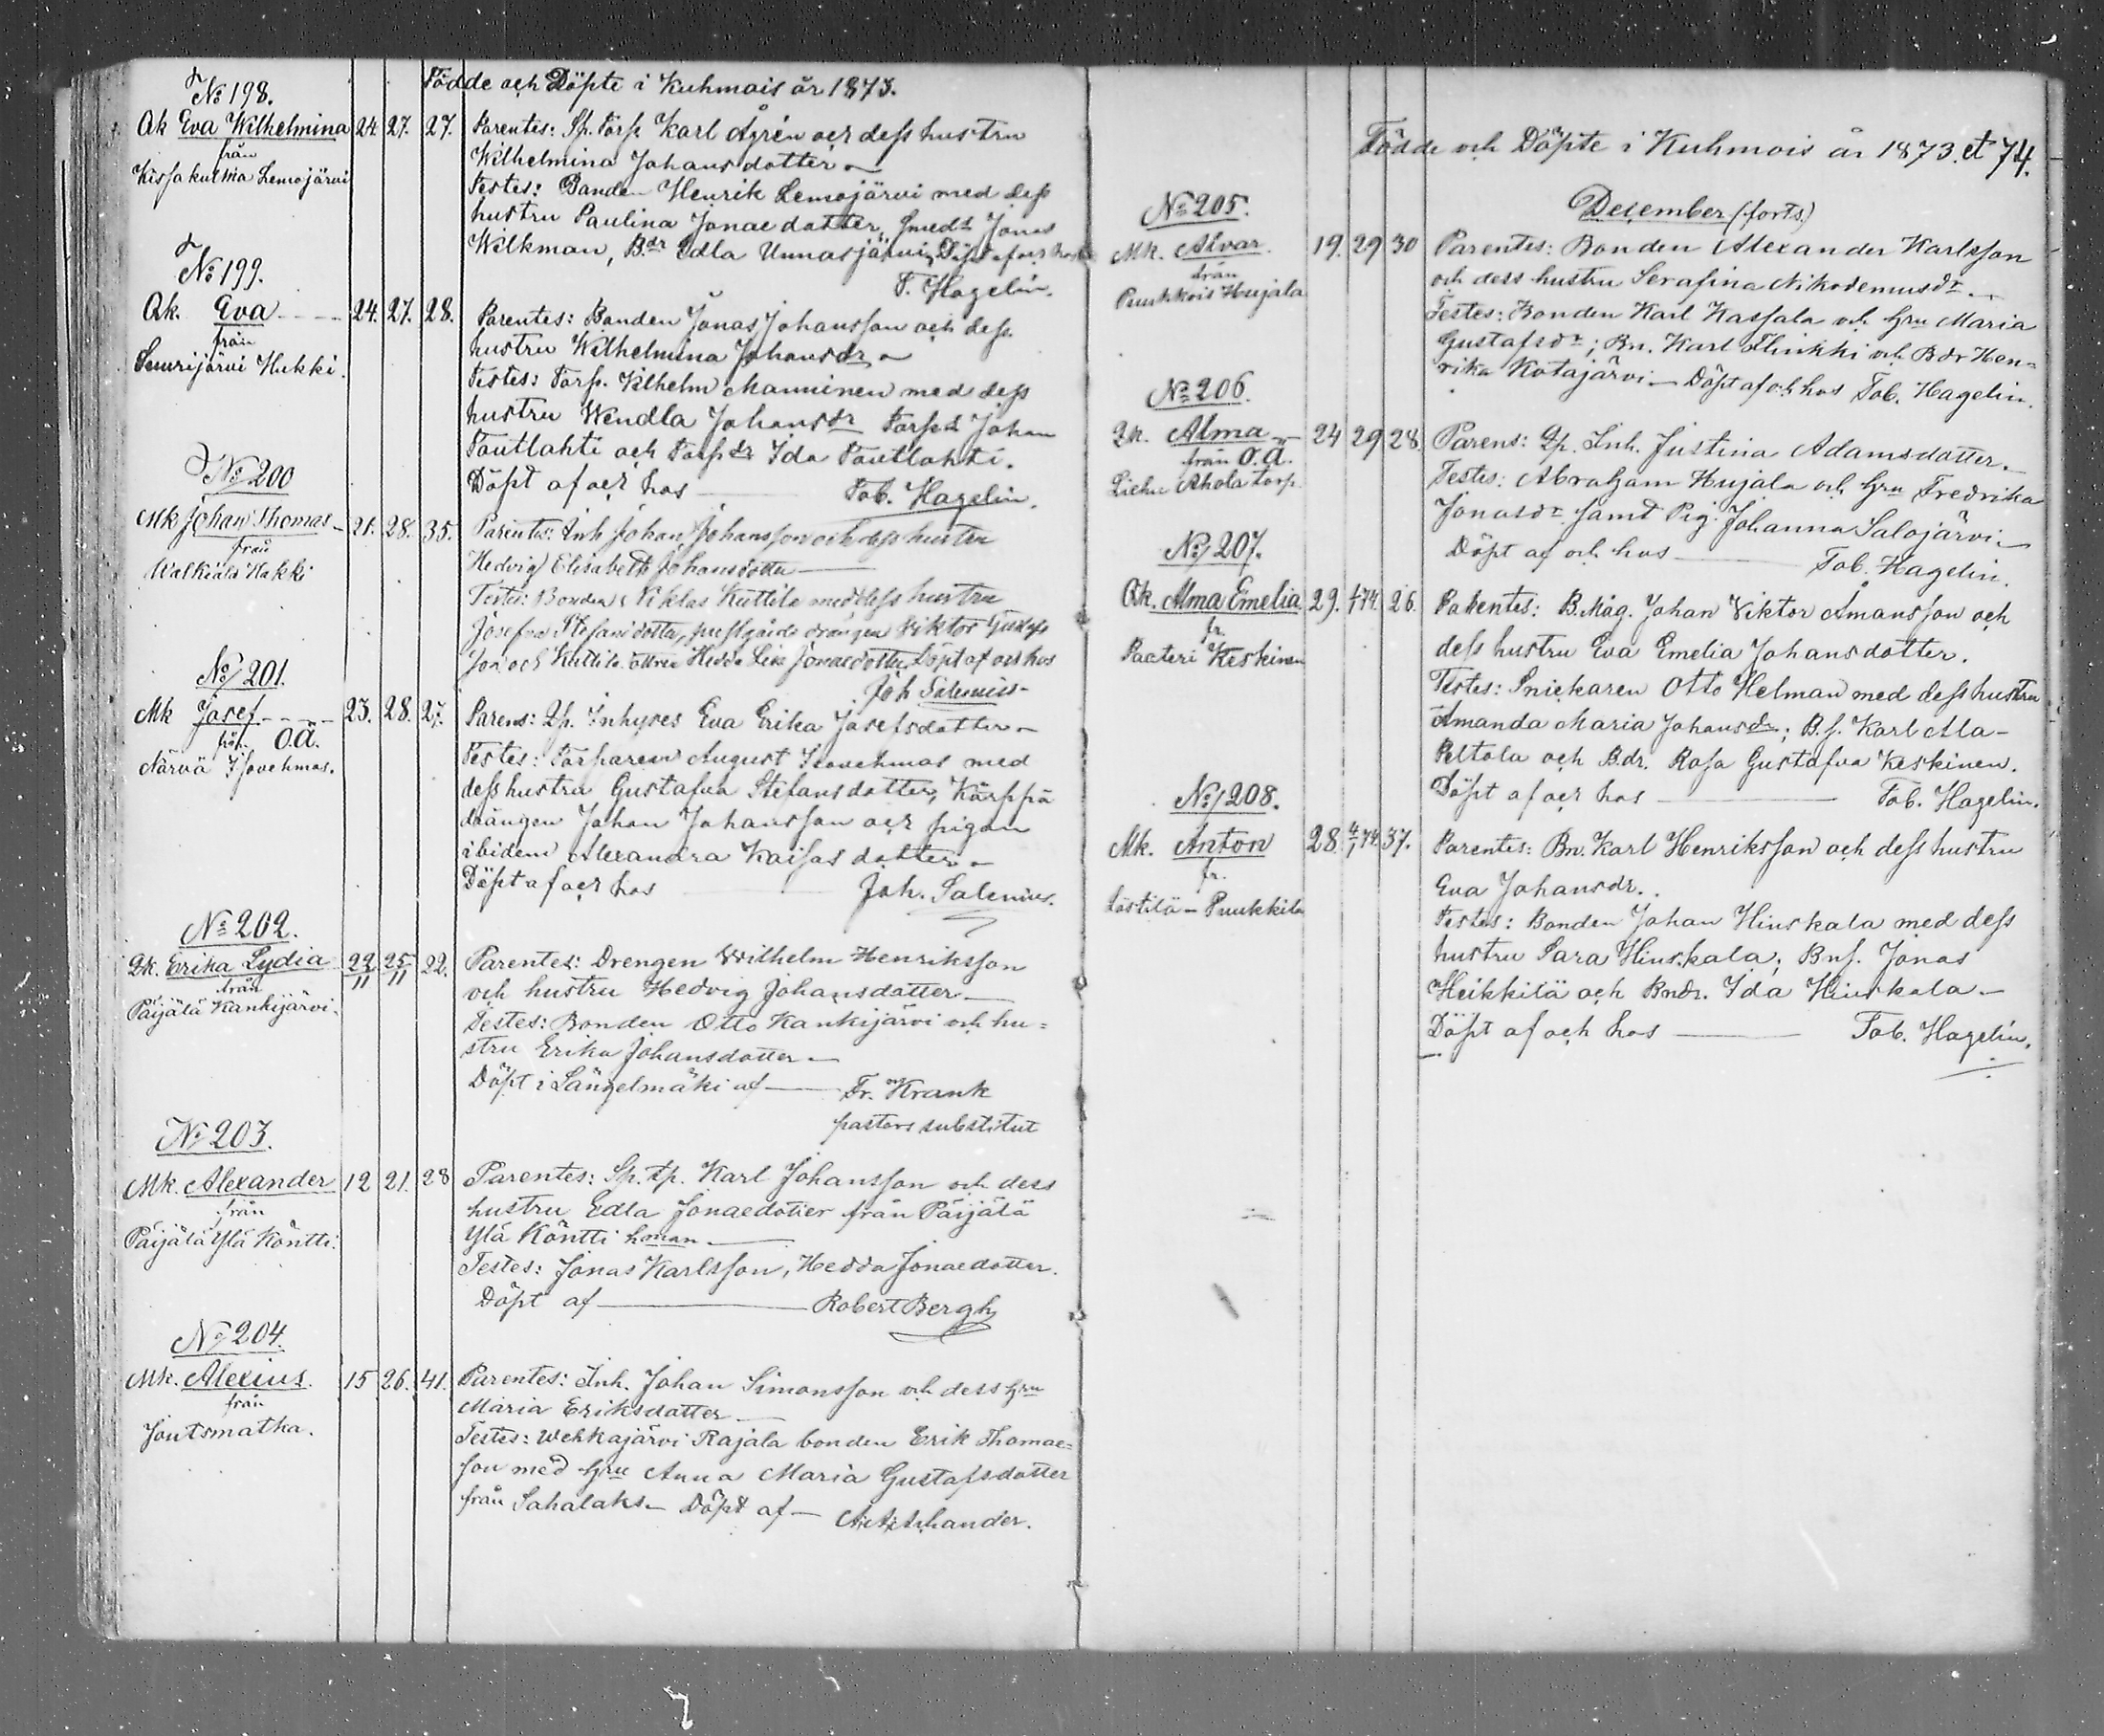 Födde och Döpte i Kuhmois år 1873.
No 198.
Qk Eva Wilhelmina 24. 27. 27.
från
Kissakulma Lemojärvi
Parentes: Sp. Torp. Karl Ågrén och dess hustru
Wilhelmina Johansdotter
Testes: Bonden Henrik Lemojärvi med dess
hustru Paulina Jonaedotter, Smeds Jonas
Wilkman, Bdr Edla Unnasjärvi, Döpt af och hos
T. Hagelin.
No 199.
Qk. Eva 24. 27. 28.
från
Hukki.
Parentes: Bonden Jonas Johansson och dess
hustru Wilhelmina Johansdr
Testes: Torp. Vilhelm Manninen med dess
hustru Wendla Johansdr Torps Johan
Tautlahti och Torpdr Ida Tautlahti.
Döpt af och hos Tob. Hagelin.
No 200
Mk Johan Thomas 21. 28. 35.
från
Hakki
Parentes: Inh Johan Johansson och dess hustru
Hedvig Elisabeth Johansdotter
Testes: Bonden Niklas Kuttila med dess hustru
Josefina Stefansdotter, prestgårds drängen Viktor Gustafs
son och Kuttila dottren Hedda Lisa Jonaedotter Döpt af och hos
Joh Salenius
No 201.
Mk Josef 23. 28. 27.
från O.Ä.
Närvä Isovehmas.
Parens: Qp. Inhyses Eva Erika Josefsdotter
Testes: Torparen August Isovehmas med
dess hustru Gustafva Stefansdotter, Kärppä
drängen Johan Johansson och pigan
ibidem Alexandra Kaisasdotter
Döpt af och hos Joh. Salenius.
No 202.
Qk. Erika Lydia 22/11 25/11 22.
från
Päijälä Kankijärvi.
Parentes: Drengen Wilhelm Henriksson
och hustru Hedvig Johansdotter
Testes: Bonden Otto Kankijärvi och hu=
stru Erika Johansdotter
Döpt i Längelmäki af Fr. Krank
pastors substitut
No 203.
Mk. Alexander 12 21. 28
från
Päijälä Ylä Köntti.
Parentes: Sp. tp. Karl Johansson och dess
hustru Edla Jonaedotter från Päijälä
Ylä Köntti hman
Testes: Jonas Karlsson, Hedda Jonaedotter.
Döpt af Robert Bergh
No 204.
Mk. Alexius. 15 26. 41.
från
Joutsmatka.
Parentes: Inh. Johan Simonsson och dess hru
Maria Eriksdotter
Testes: Wehkajärvi Rajala bonden Erik Thomae=
son med hru Anna Maria Gustafsdotter
från Sahalaks. Döpt af
Födde och Döpte i Kuhmois år 1873. et 74.
Desember (forts.)
No 205.
Mk. Alvar. 19. 29 30
från
Puukkois Hujala
Parentes: Bonden Alexander Karlsson
och dess hustru Serafina Nikodemusdr.
Testes: Bonden Karl Kassala och hru Maria
Gustafsdr; Bn. Karl Flinkki och Bdr Hen=
rika Kotajärvi Döpt af och hos Tob. Hagelin.
No 206.
Qk. Alma 24 29 28.
från O.Ä.
Liehu Ahola torp.
Parens: Qp. Inh. Justina Adamsdotter.
Testes: Abraham Hujala och hru Fredrika
Jonasdr samt Pig. Johanna Salojärvi.
Döpt af och hos Tob. Hagelin.
No 207.
Qk. Alma Emelia 29. 1/1 74. 26.
fr.
Paateri Keskinen
Parentes: B.Måg. Johan Viktor Amansson och
dess hustru Eva Emelia Johansdotter.
Testes: Snickaren Otto Helman med dess hustru
Amanda Maria Johansdr; B.s. Karl Ala-
Peltola och Bdr. Rosa Gustafva Keskinen.
Döpt af och hos Tob. Hagelin.
No 208.
Mk. Anton 28. 4/1 74. 37.
fr.
Lästilä - Puukkila
Parentes: Bn. Karl Henriksson och dess hustru
Eva Johansdr.
Testes: Bonden Johan Hinskala med dess
hustru Sara Hinskala; Bns. Jonas
Heikkilä och Bndr. Ida Hinskala
Döpt af och hos Tob. Hagelin.